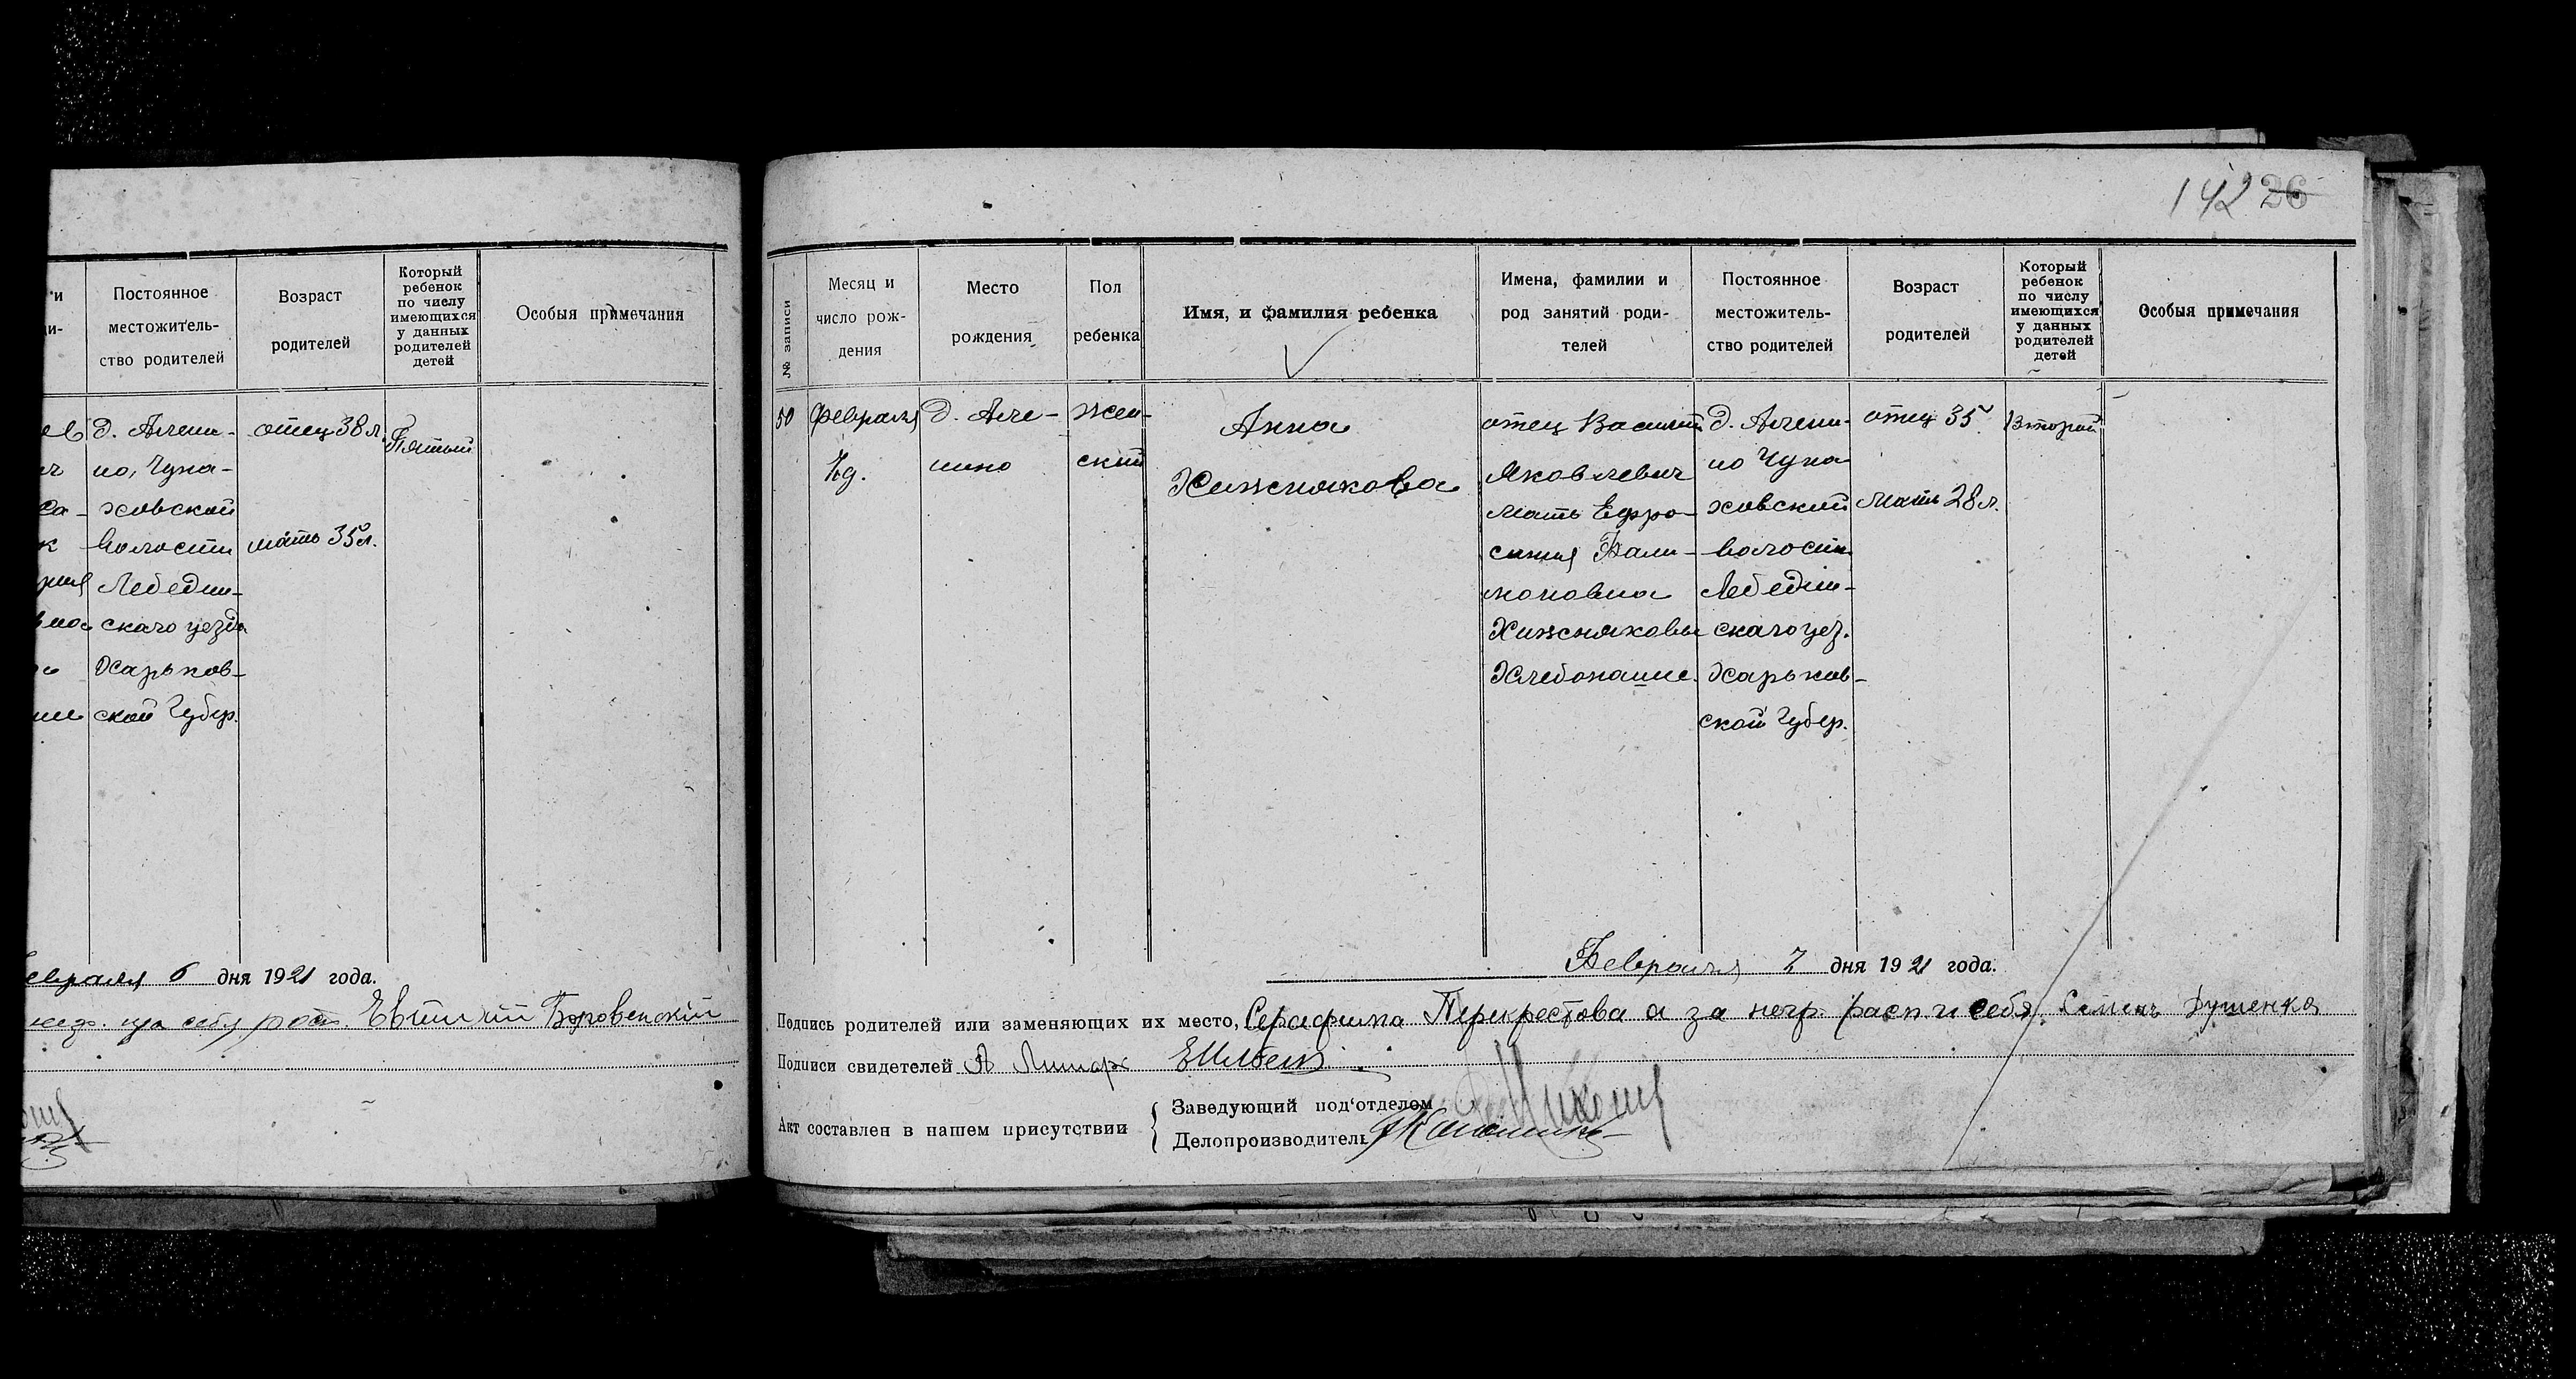 142 26
Постоянное
местожитель-
ство родителей
Возраст
родителей
Который
ребенок
по числу
имеющихся
у данных
родителей
детей
Особыя примечания
д. Алеши-
но, Чупа-
ховской
волости
Лебедин-
скаго уезда
Харьков-
ской Губер.
отец 38 л.
мать 35 л.
Пятый
евраля 6 дня 1921 года.
за себя рос. Евтихий Боровенский
№ записи
Месяц и
число рож-
дения
Место
рождения
Пол
ребенка
Имя, и фамилия ребенка
Имена, фамилии и
род занятий роди-
телей
Постоянное
местожитель-
ство родителей
Возраст
родителей
Который
ребенок
по числу
имеющихся
у данных
родителей
детей
Особыя примечания
50
Февраля
д. Але-
шино
Жен-
ский
Анна
Хижнякова
отец Василий
Яковлевич
мать Ефро-
синия Пали-
моновна
Хижняковы
Хлебопашц.
д. Алеши-
но Чупа
ховской
волости
Лебедин-
скаго уез.
Харьков-
ской Губер.
отец 35
мать 28 л.
Второй
Февраля 7 дня 1921 года.
Подпись родителей или заменяющих их место, Серафима Перекрестова а за негр. расп и себя Семенъ Душенка
Подписи свидетелей А
Акт составлен в нашем присутствии
Заведующий под'отделом
Делопроизводитель